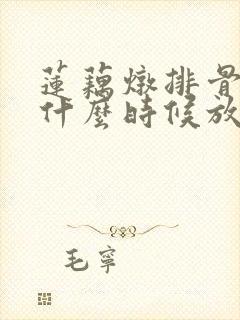 蓮藕燉排骨
什麼時候放
毛寧